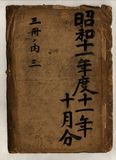 昭和十一年度十一年
十月分
三冊ノ内三